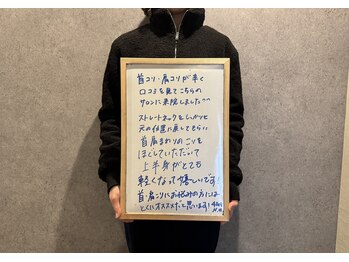 首コリ・肩コリが辛く
口コミを見てこちらの
サロンに来院しました^^
ストレートネックをしっかりと
元の位置に戻してもらい
首肩まわりのこりを
ほぐしていただいて
上半身がとても
軽くなって嬉しいです!
首肩こりにお悩みの方には
とくにオススメだと思います!